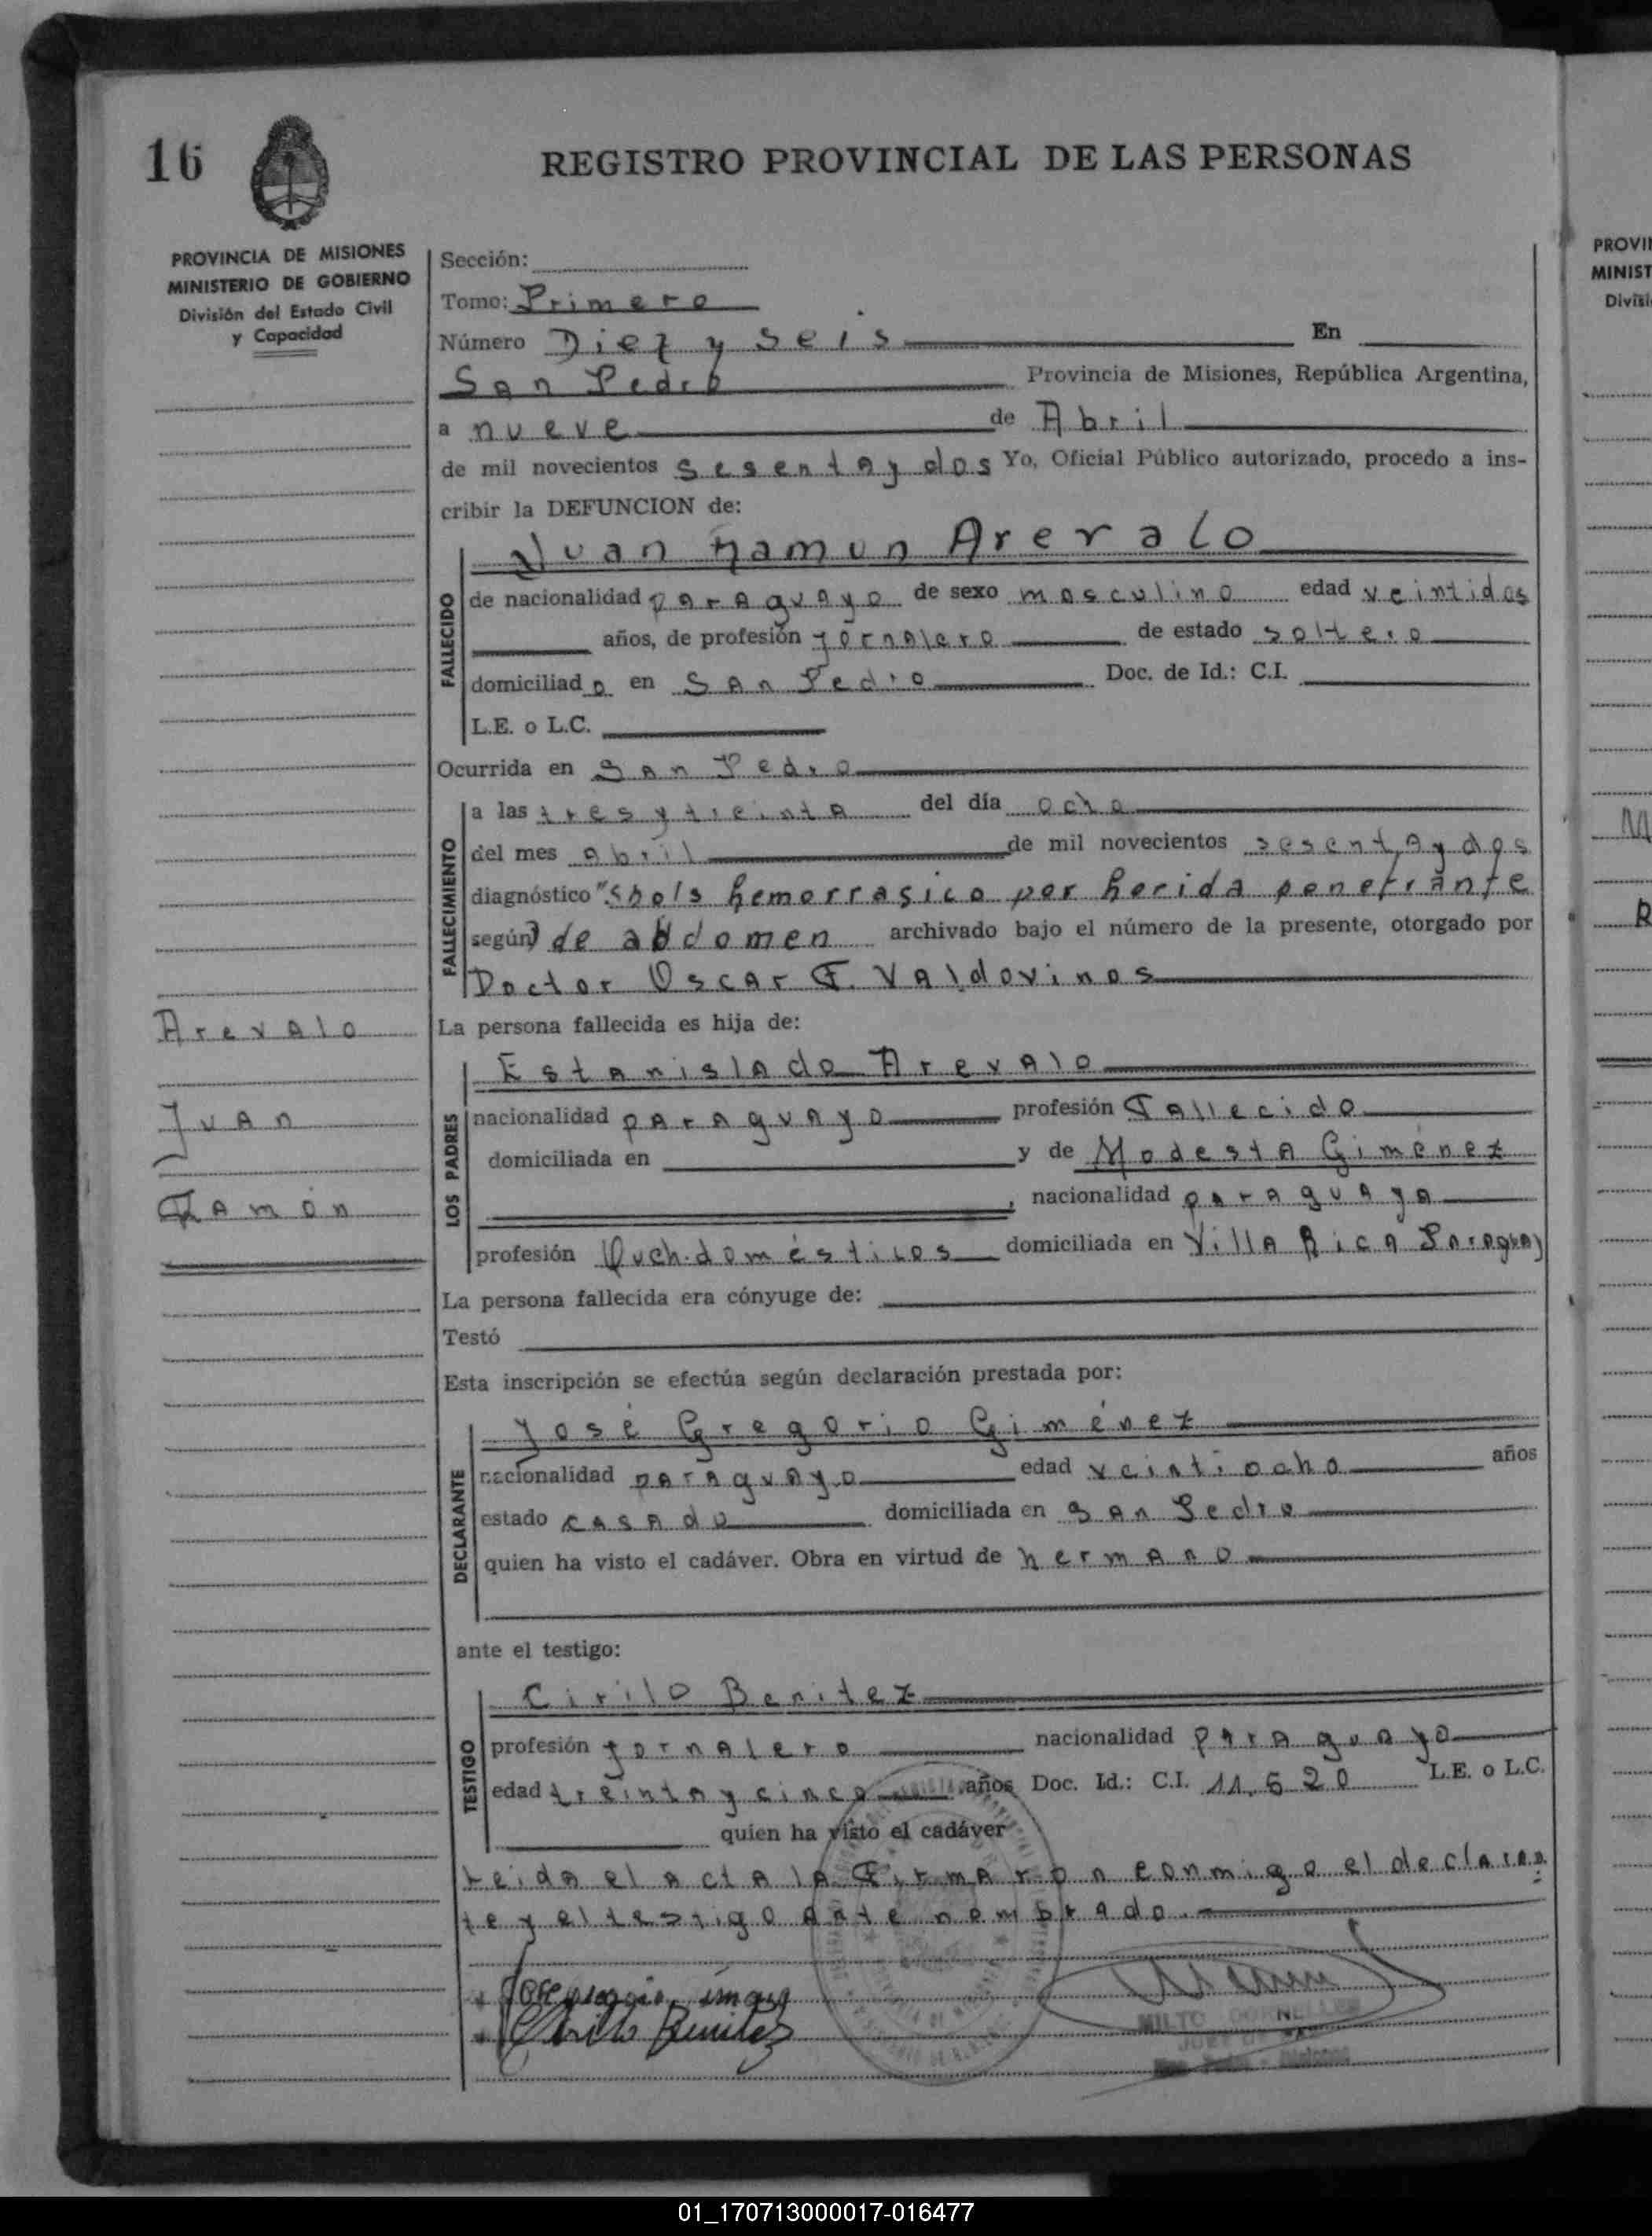 16
REGISTRO PROVINCIAL DE LAS PERSONAS
PROVINCIA DE MISIONES
MINISTERIO DE GOBIERNO
División del Estado Civil
y Capacidad
Sección:
Tomo: Primero
Número Diez y seis En
San Pedro Provincia de Misiones, República Argentina,
a nueve de Abril
de mil novecientos sesenta y dos Yo, Oficial Público autorizado, procedo a ins-
cribir la DEFUNCION de:
Juan Ramon Arevalo
FALLECIDO
de nacionalidad paraguayo de sexo masculino edad veintidos
años, de profesión jornalero de estado soltero
domiciliado en San Pedro Doc. de Id.: C.I.
L.E. o L.C.
Ocurrida en San Pedro
FALLECIMIENTO
a las tres y treinta del día ocho
del mes abril de mil novecientos sesenta y dos
diagnóstico "Shols hemorrasico por herida penetrante
según de abdomen archivado bajo el número de la presente, otorgado por
Doctor Oscar F. Valdovinos
Arevalo
Juan
Ramón
La persona fallecida es hija de:
LOS PADRES
Estanislado Arevalo
nacionalidad paraguayo profesión Fallecido
domiciliada en y de Modesta Giménez
, nacionalidad paraguaya
profesión Quch. domésticos domiciliada en Villa Rica Paraguay
La persona fallecida era cónyuge de:
Testó
Esta inscripción se efectúa según declaración prestada por:
DECLARANTE
José Gregorio Giménez
nacionalidad paraguayo edad veintiocho años
estado casado domiciliada en San Pedro
quien ha visto el cadáver. Obra en virtud de hermano
ante el testigo:
TESTIGO
Cirilo Benitez
profesión jornalero nacionalidad paraguayo
edad treinta y cinco años Doc. Id.: C.I. 11.620 L.E. o L.C.
quien ha visto el cadáver
Leida el acta la firmaron conmigo el declaran
te y el testigo ante nombrado.
Cirilo Benitez
PROVI
MINIST
Divisi
01_170713000017-016477